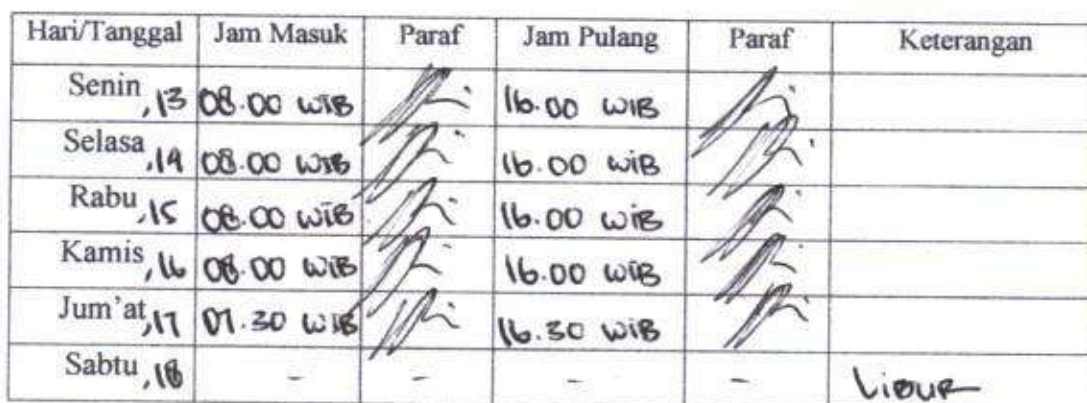 Hari/Tanggal Jam Masuk Paraf Jam Pulang Paraf Keterangan
Senin, 13 08.00 WIB 16.00 WIB
Selasa, 14 08.00 WIB 16.00 WIB
Rabu, 15 08.00 WIB 16.00 WIB
Kamis, 16 08.00 WIB 16.00 WIB
Jum'at, 17 07.30 WIB 16.30 WIB
Sabtu, 18 - - - - LIBUR